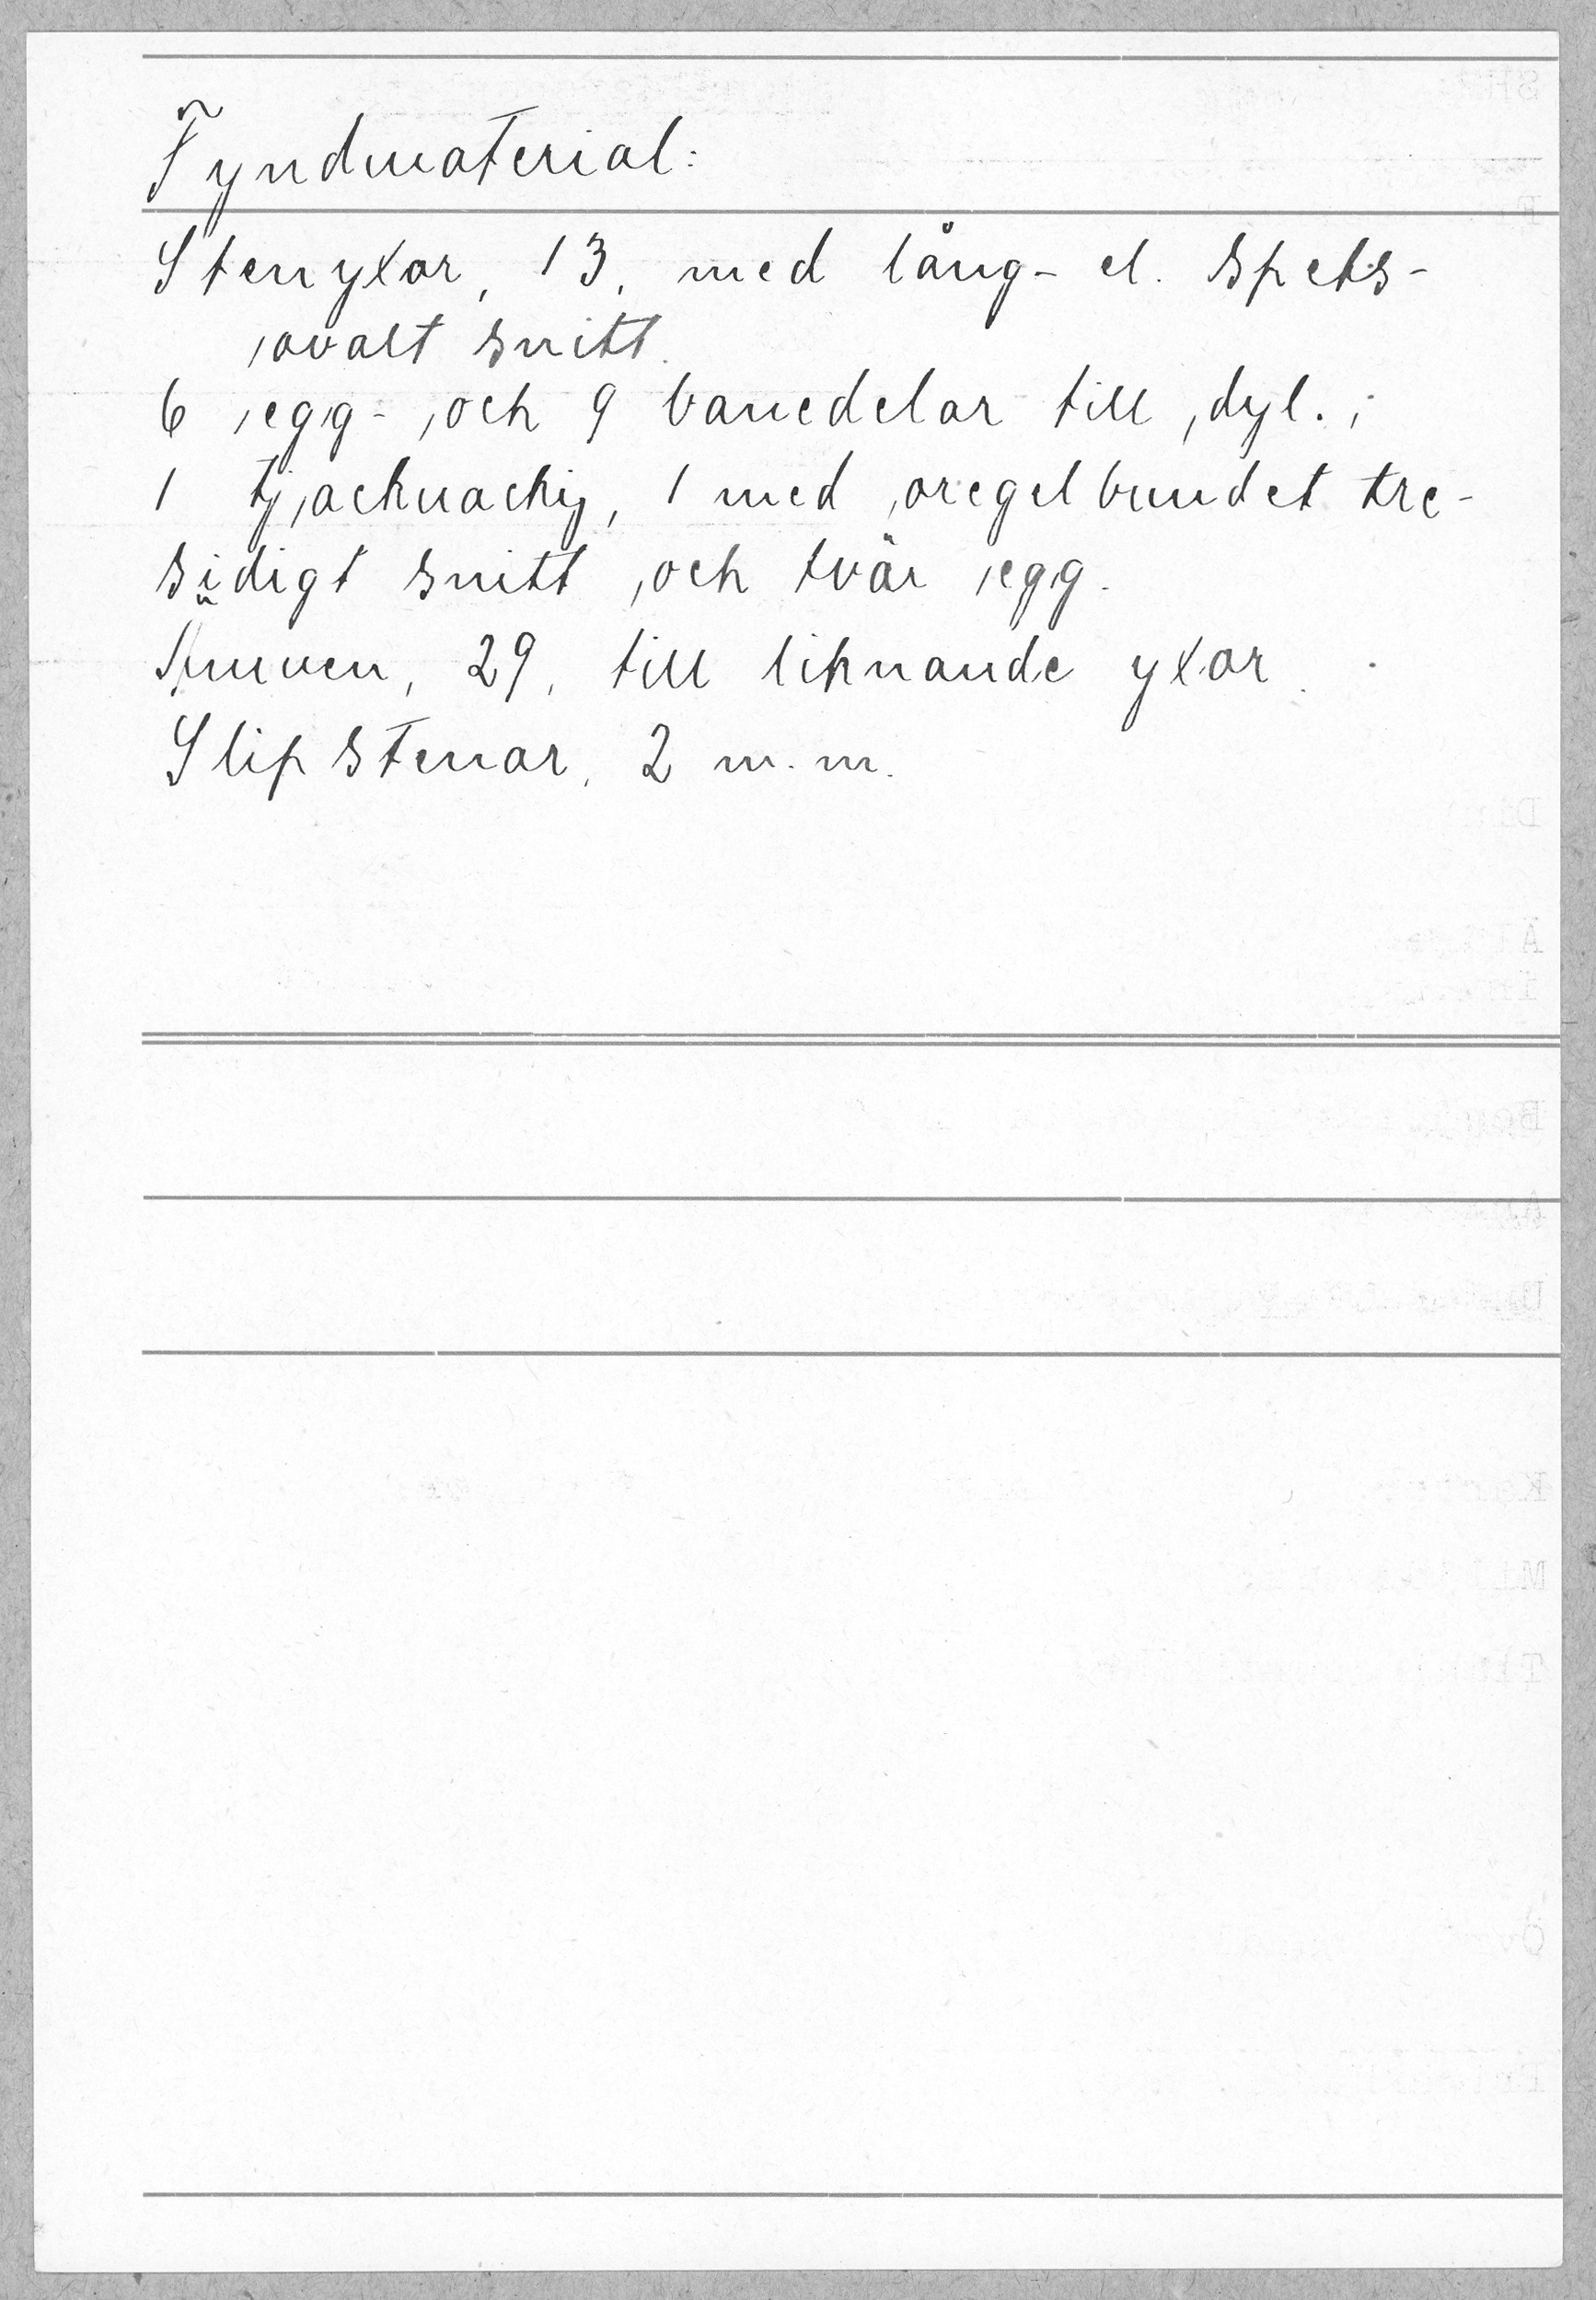 Fyndmaterial:
Stenyxor, 13, med lång- el. spets-
ovalt snitt.
6 egg- och 9 banedelar till dyl.;
1 tjacknackig, 1 med oregelbundet tre-
sidigt snitt och tvär egg.
Ämnen, 29, till liknande yxor.
Slipstenar, 2 m.m.